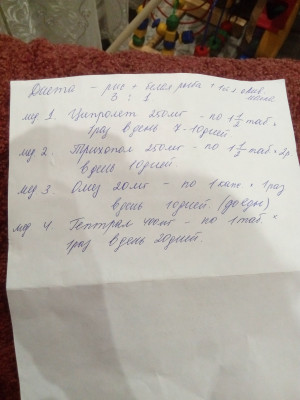 Диета - рис + белая рыба + 1ст.л олив. масло
3 : 1
мед 1. Ципролет 250мг - по 1 1/2 таб ×
1раз в день 7-10дней
мед 2. Трихопол 250мг - по 1 1/2 таб × 2р
в день 10дней
мед 3. Омез 20мг - по 1 капс. × 1раз
в день 10дней (до еды)
мед 4. Гептрал 400мг - по 1таб. ×
1раз в день 20дней.